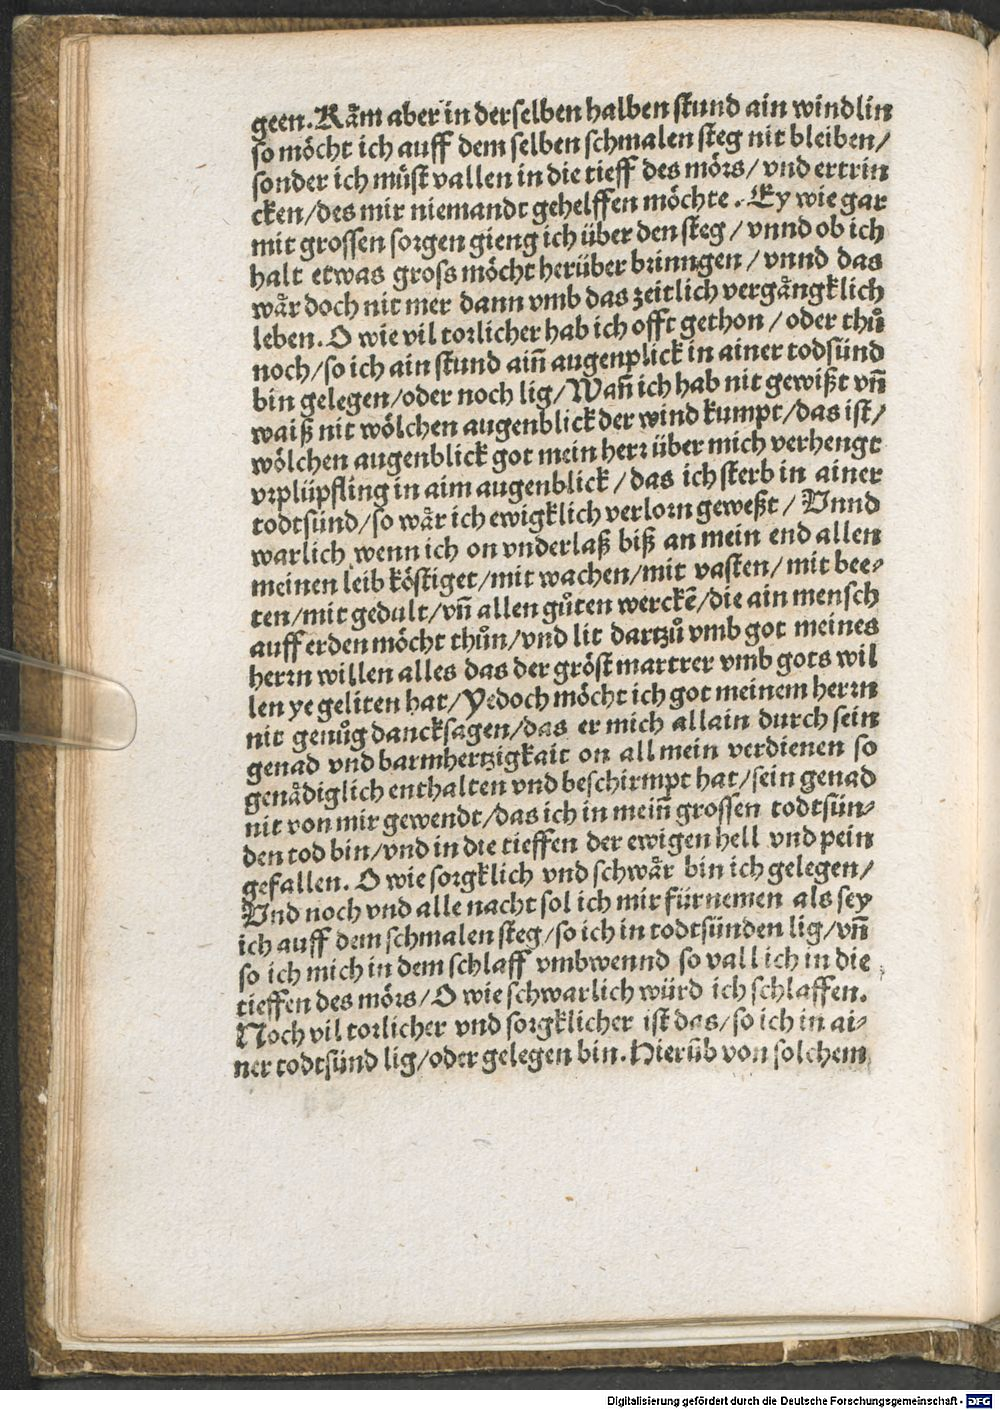 geen. Kaͤm aber in derselben halben stund ain windlin
so moͤcht ich auff dem selben schmalen steg nit bleiben/
sonder ich muͤst vallen in die tieff des moͤrs/ vnd ertrin
cken/ des mir niemandt gehelffen moͤchte. Ey wie gar
mit grossen sorgen gieng ich über den steg/ vnnd ob ich
halt etwas gross moͤcht herüber brinngen/ vnnd das
waͤr doch nit mer dann vmb das zeitlich vergaͤngklich
leben. O wie vil torlicher hab ich offt gethon/ oder thuͦ
noch/ so ich ain stund ain̄ augenplick in ainer todsünd
bin gelegen/ oder noch lig/ Wan̄ ich hab nit gewißt vn̄
waiß nit woͤlchen augenblick der wind kumpt/ das ist/
woͤlchen augenblick got mein herr über mich verhengt
vrplüpfling in aim augenblick/ das ich sterb in ainer
todtsünd/ so waͤr ich ewigklich verlorn geweßt/ Vnnd
warlich wenn ich on vnderlaß biß an mein end allen
meinen leib koͤstiget/ mit wachen/ mit vasten/ mit bee-
ten/ mit gedult/ vn̄ allen guͦten werckē/ die ain mensch
auff erden moͤcht thuͦn/ vnd lit dartzuͦ vmb got meines
herrn willen alles das der groͤst martrer vmb gots wil
len ye geliten hat/ Yedoch moͤcht ich got meinem herrn
nit genuͦg dancksagen/ das er mich allain durch sein
genad vnd barmhertzigkait on all mein verdienen so
genaͤdiglich enthalten vnd beschirmpt hat/ sein genad
nit von mir gewendt/ das ich in mein̄ grossen todtsün-
den tod bin/ vnd in die tieffen der ewigen hell vnd pein
gefallen. O wie sorgklich vnd schwaͤr bin ich gelegen/
Vnd noch vnd alle nacht sol ich mir fürnemen als sey
ich auff dem schmalen steg/ so ich in todtsünden lig/ vn̄
so ich mich in dem schlaff vmbwennd so vall ich in die
tieffen des moͤrs/ O wie schwarlich würd ich schlaffen.
Noch vil torlicher vnd sorgklicher ist das/ so ich in ai-
ner todtsünd lig/ oder gelegen bin. Hierüb von solchem
Digitalisierung gefördert durch die Deutsche Forschungsgemeinschaft - DFG